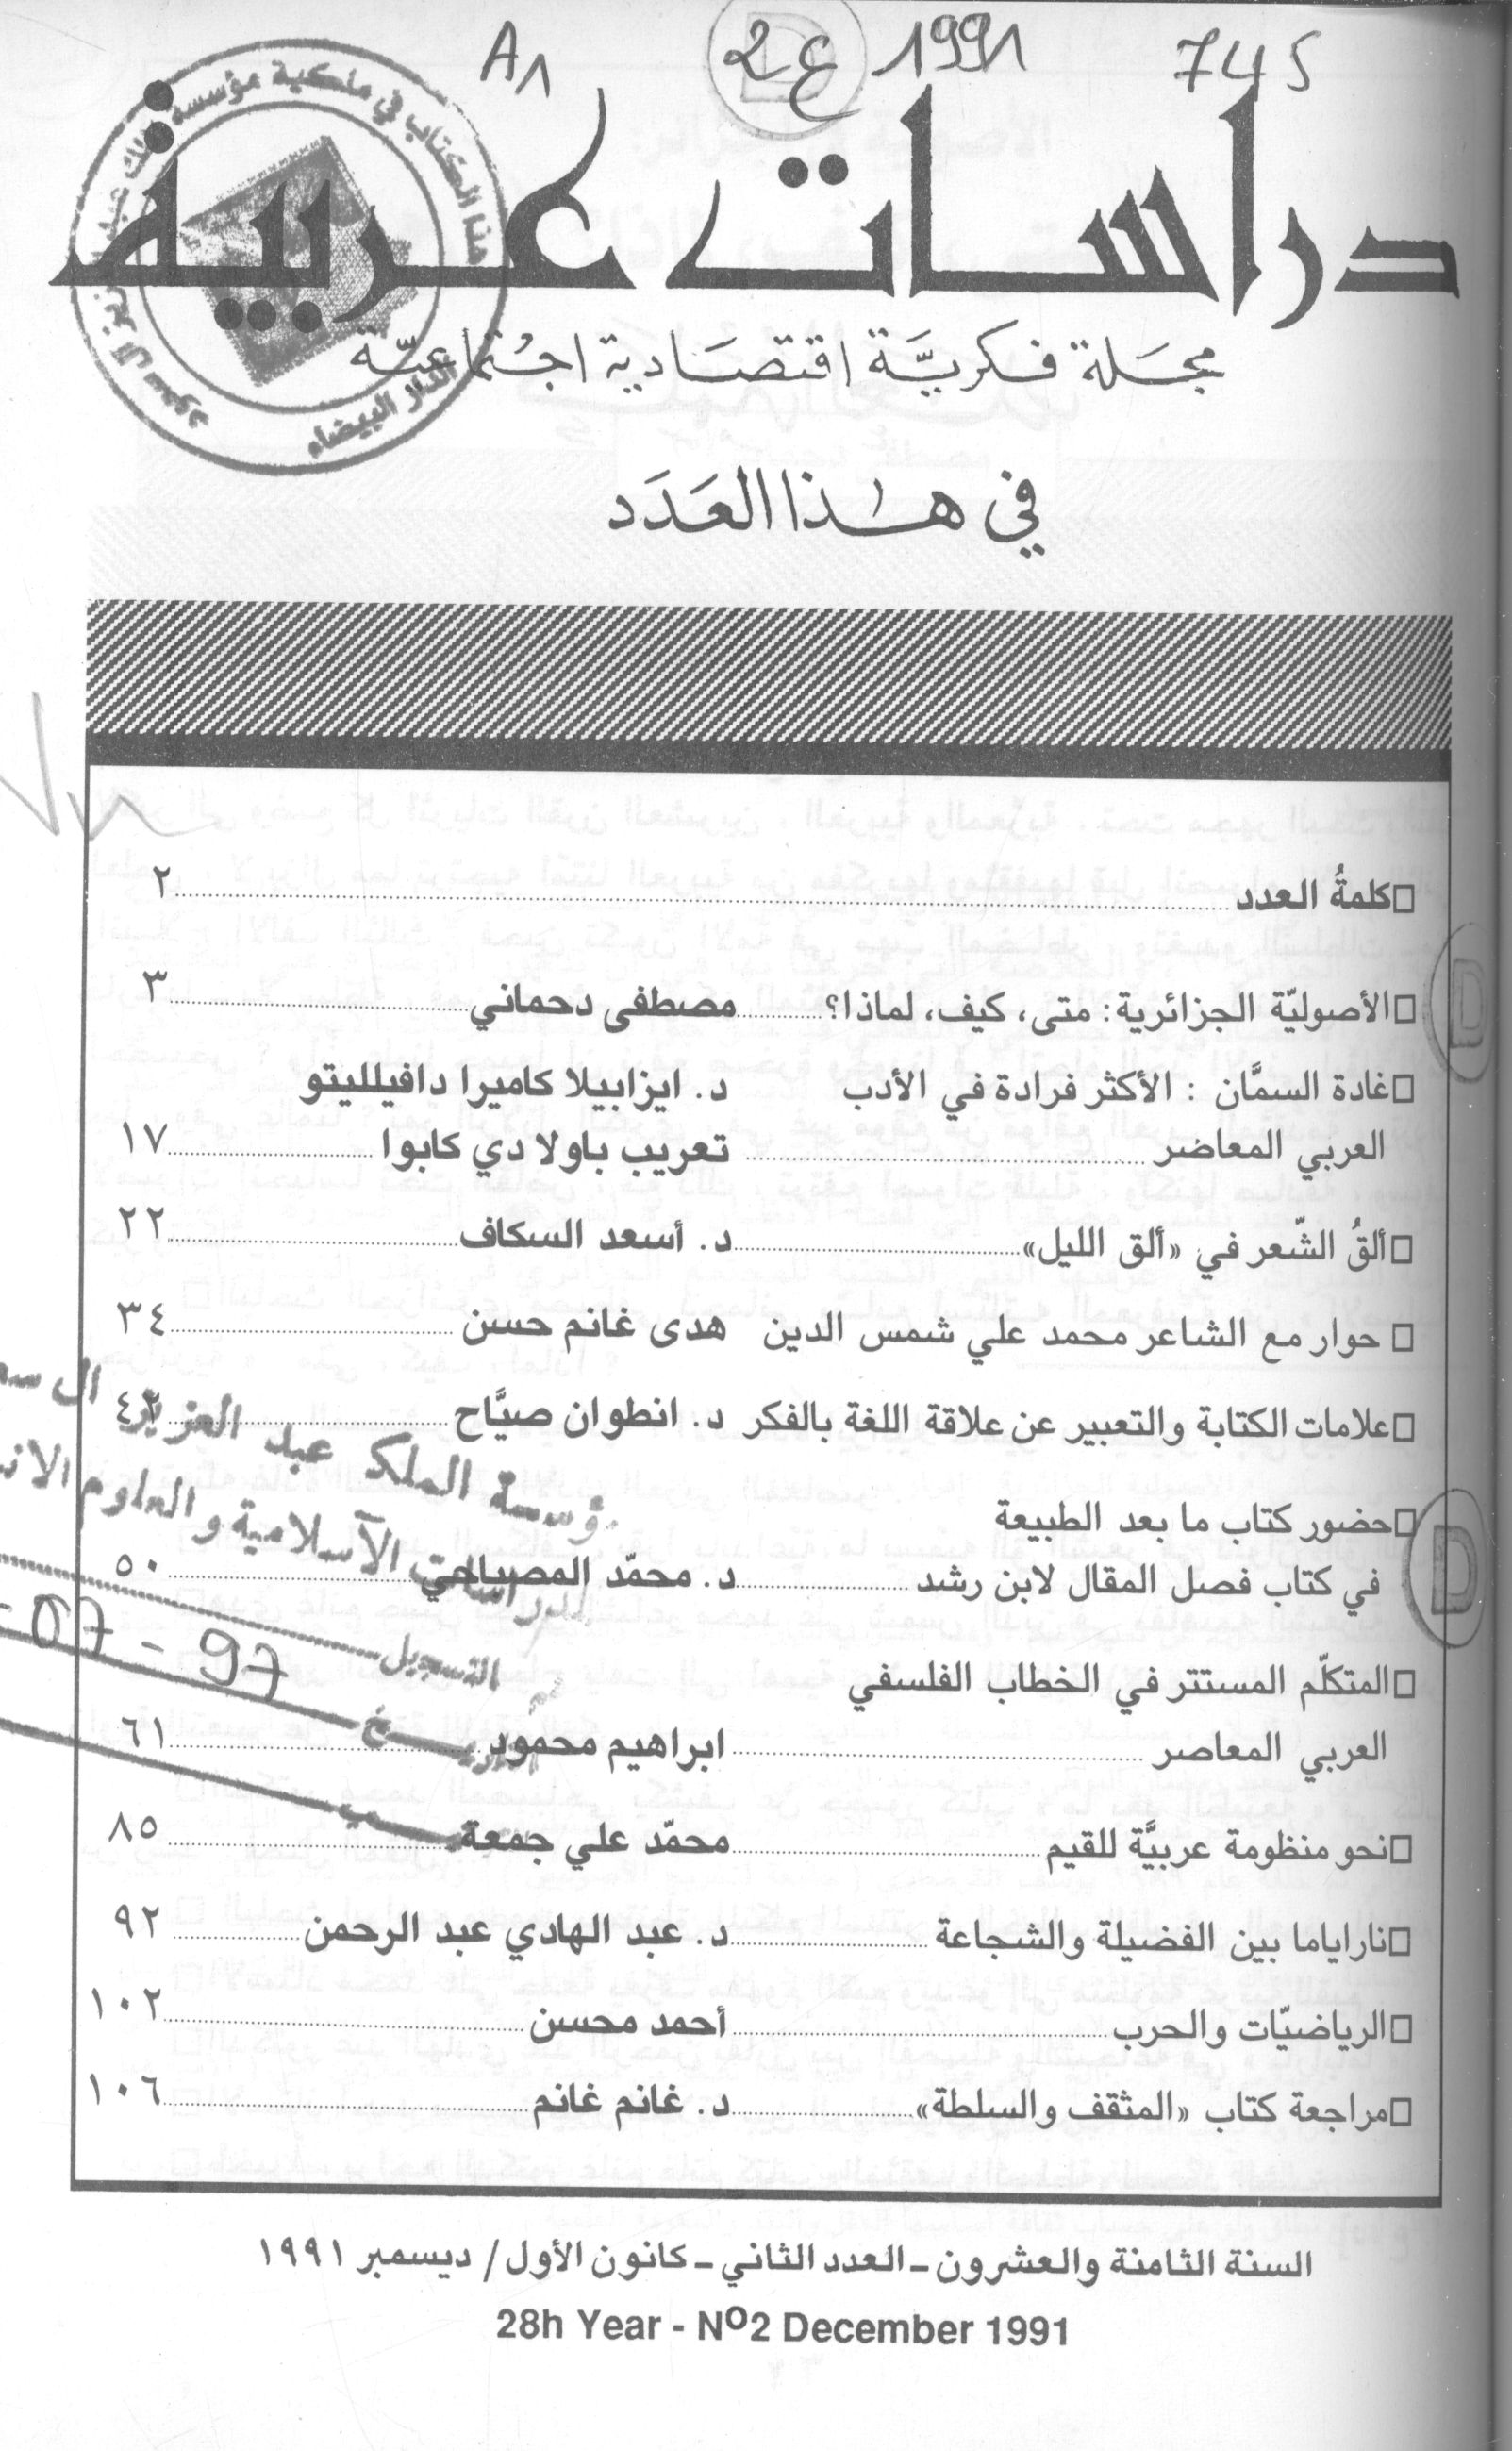 A1 2ع 1991 745
هذا الكتاب في ملكية مؤسسة الملك عبد العزيز آل سعود
الدار البيضاء
دراسات عربية
مجلة فكريَّة اقتصَادية اجتماعيّة
في هٰذا العَدَد
□كلمةُ العدد ٢
□الأصوليّة الجزائرية: متى، كيف، لماذا؟ مصطفى دحماني ٣
□غادة السمَّان : الأكثر فرادة في الأدب د. ايزابيلا كاميرا دافيلليتو
العربي المعاضر تعريب باولا دي كابوا ١٧
□ألقُ الشّعر في «ألق الليل» د. أسعد السكاف ٢٢
□ حوار مع الشاعر محمد علي شمس الدين هدى غانم حسن ٣٤
□علامات الكتابة والتعبير عن علاقة اللغة بالفكر د. انطوان صيَّاح ٤٣
□حضور كتاب ما بعد الطبيعة
في كتاب فصل المقال لابن رشد د. محمّد المصباحي ٥٠
□المتكلّم المستتر في الخطاب الفلسفي
العربي المعاصر ابراهيم محمود ٦١
□نحو منظومة عربيَّة للقيم محمّد علي جمعة ٨٥
□ناراياما بين الفضيلة والشجاعة د. عبد الهادي عبد الرحمن ٩٢
□الرياضيّات والحرب أحمد محسن ١٠٢
□مراجعة كتاب «المثقف والسلطة» د. غانم غانم ١٠٦
ؤسسة الملك عبد العزيز ال سع
الاسلامية و العلوم الان
التسجيل
07 - 97
D
D
السنة الثامنة والعشرون ـ العدد الثاني ـ كانون الأول/ ديسمبر ١٩٩١
28h Year - Nº2 December 1991